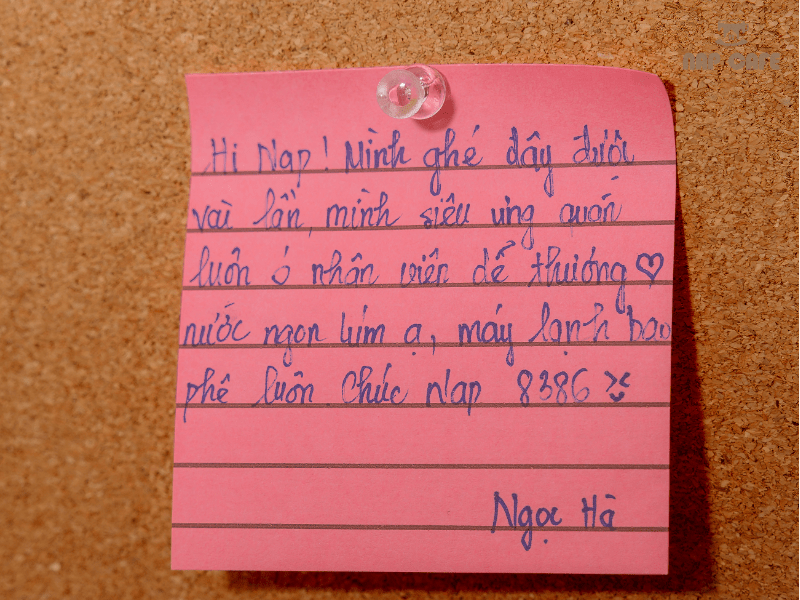 NAP CAFE
Hi Nap! Mình ghé đây được
vài lần, mình siêu ưng quán
luôn ó nhân viên dễ thương ♡
nước ngon lúm ạ, máy lạnh bao
phê luôn Chúc Nap 8386
Ngọc Hà